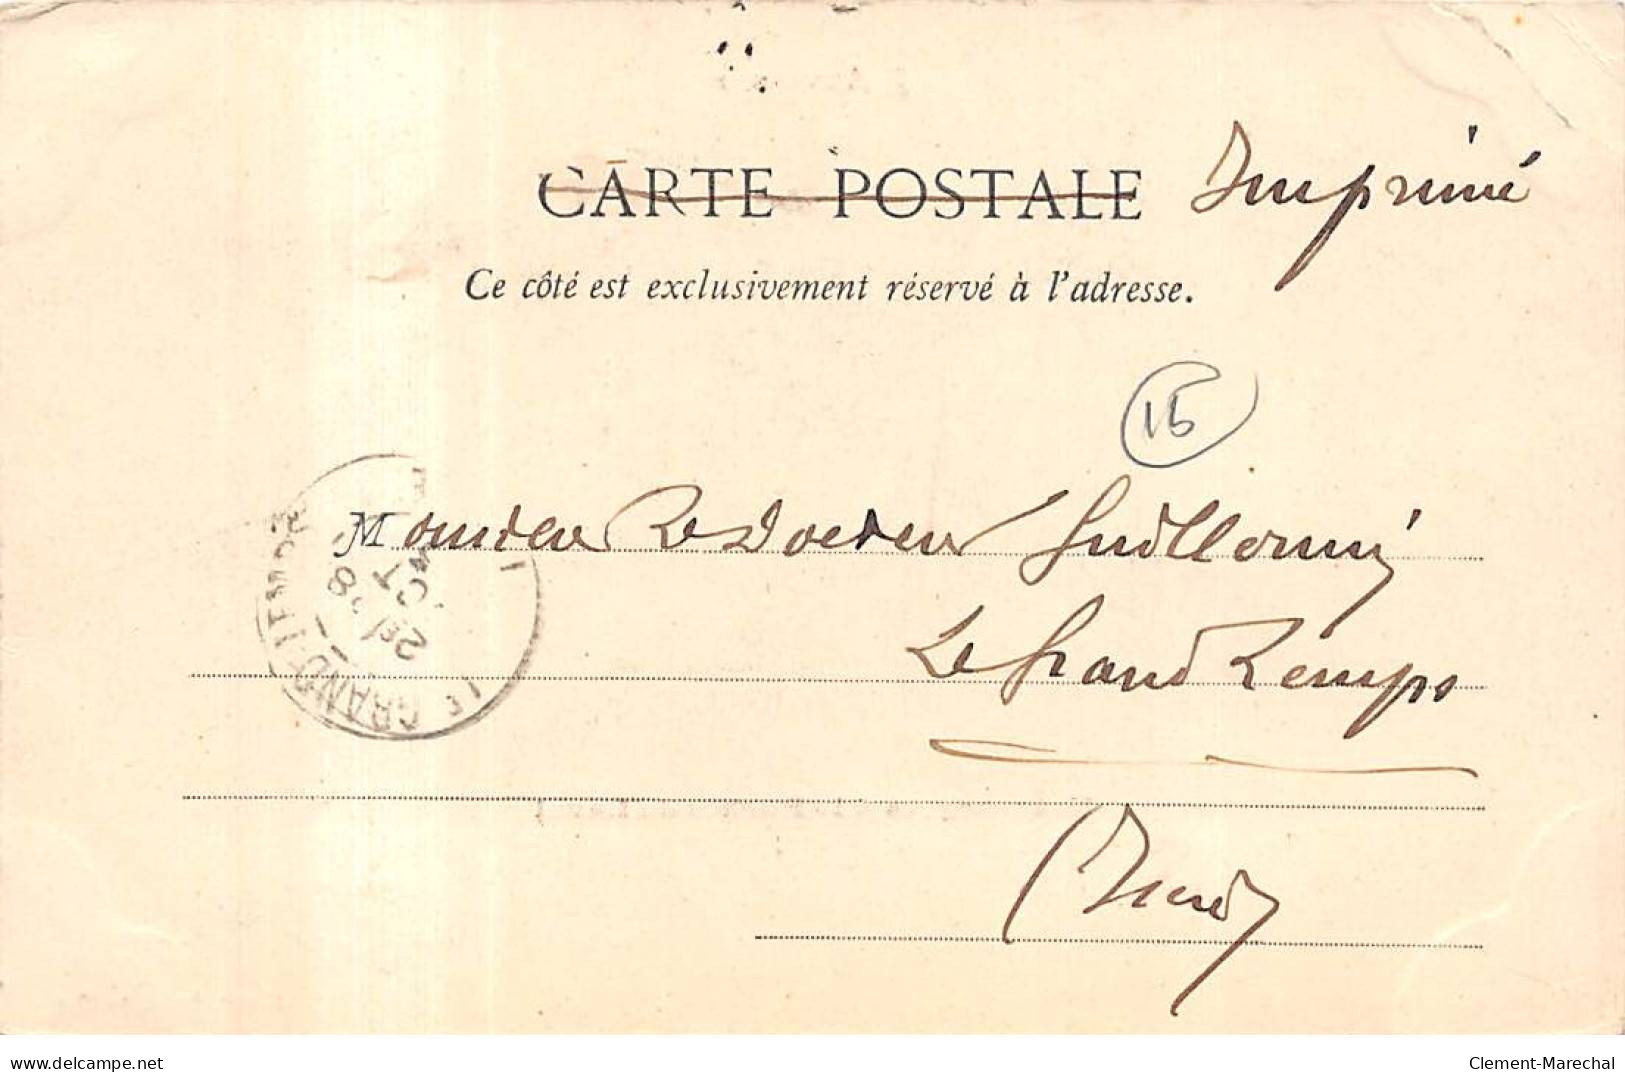 CARTE POSTALE Imprimé
Ce côté est exclusivement réservé à l'adresse.
15
Monsieur Le Docteur Guillermin
Le Grand Lemps
(Isère)
LE GRAND-LEMPS
ISÈRE
28
OCT
www.delcampe.net
Clement-Marechal